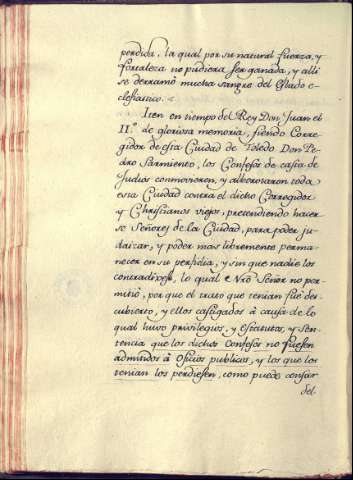 perdida, la qual por su natural fuerza, y
fortaleza no pudiera ser ganada, y alli
se derramó mucha sangre del estado e-
clesiastico.
Iten en tiempo del Rey Don Juan el
II.º de gloriosa memoria, siendo Corre-
gidor de esta Ciudad de Toledo Don Pe-
dro Sarmiento, los Confesos de casta de
Judios conmovieron, y alborotaron toda
esta Ciudad contra el dicho Corregidor
y Christianos viejos, pretendiendo hacer-
se Señores de la Ciudad, para poder ju-
daizar, y poder mas libremente perma-
necer en su perfidia, y sin que nadie los
contradixese, lo qual Nro Señor no per-
mitió, por que el trato que tenian fué des-
cubierto, y ellos castigados à causa de lo
qual huvo privilegios, y estatutos, y sen-
tencia que los dichos Confesos no fuesen
admitidos à oficios publicos, y los que los
tenian los perdiesen, como puede constar
del